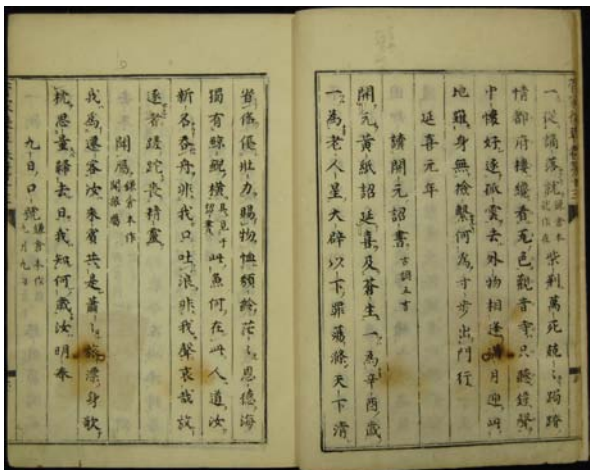 一從謫落就鎌倉本就作在柴荊萬死兢〻跼蹐
情都府樓纔看瓦色觀音寺只聽鐘聲
中懷好逐孤雲去外物相逢滿月迎此
地雖身無撿繫何為寸步出門行
延喜元年
讀開元詔書古調五言
開元黃紙詔延喜及蒼生一為辛酉歲
一為老人星大辟以下罪蕩滌天下清
省徭優壯力賜物恤頽齡茫〻恩德海
獨有鯨鯢橫具見于詔書此魚何在此人噵汝
新名吞舟非我口吐浪非我聲哀哉放
逐者蹉跎喪精靈
聞鴈鎌倉本作聞旅鴈
我為遷客汝來賓共是蕭〻旅漂身欹
枕思量歸去日我知何歲汝明春
九日口號鎌倉本作九月九日